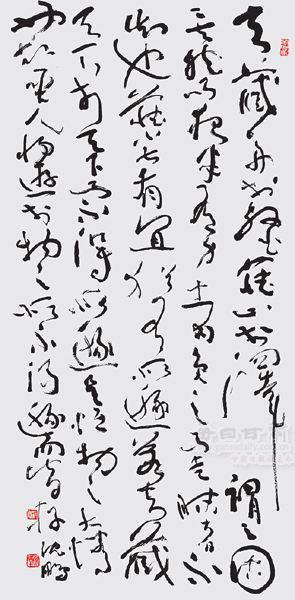 夫藏舟於壑藏山於澤謂之固
矣然而夜半有力者負之而走昧者不
知也藏小大有宜猶有所遯若夫藏
天下於天下而不得所遯是恒物之大情
也故聖人將遊於物之所不得遯而皆存 沈鵬
每日甘肃